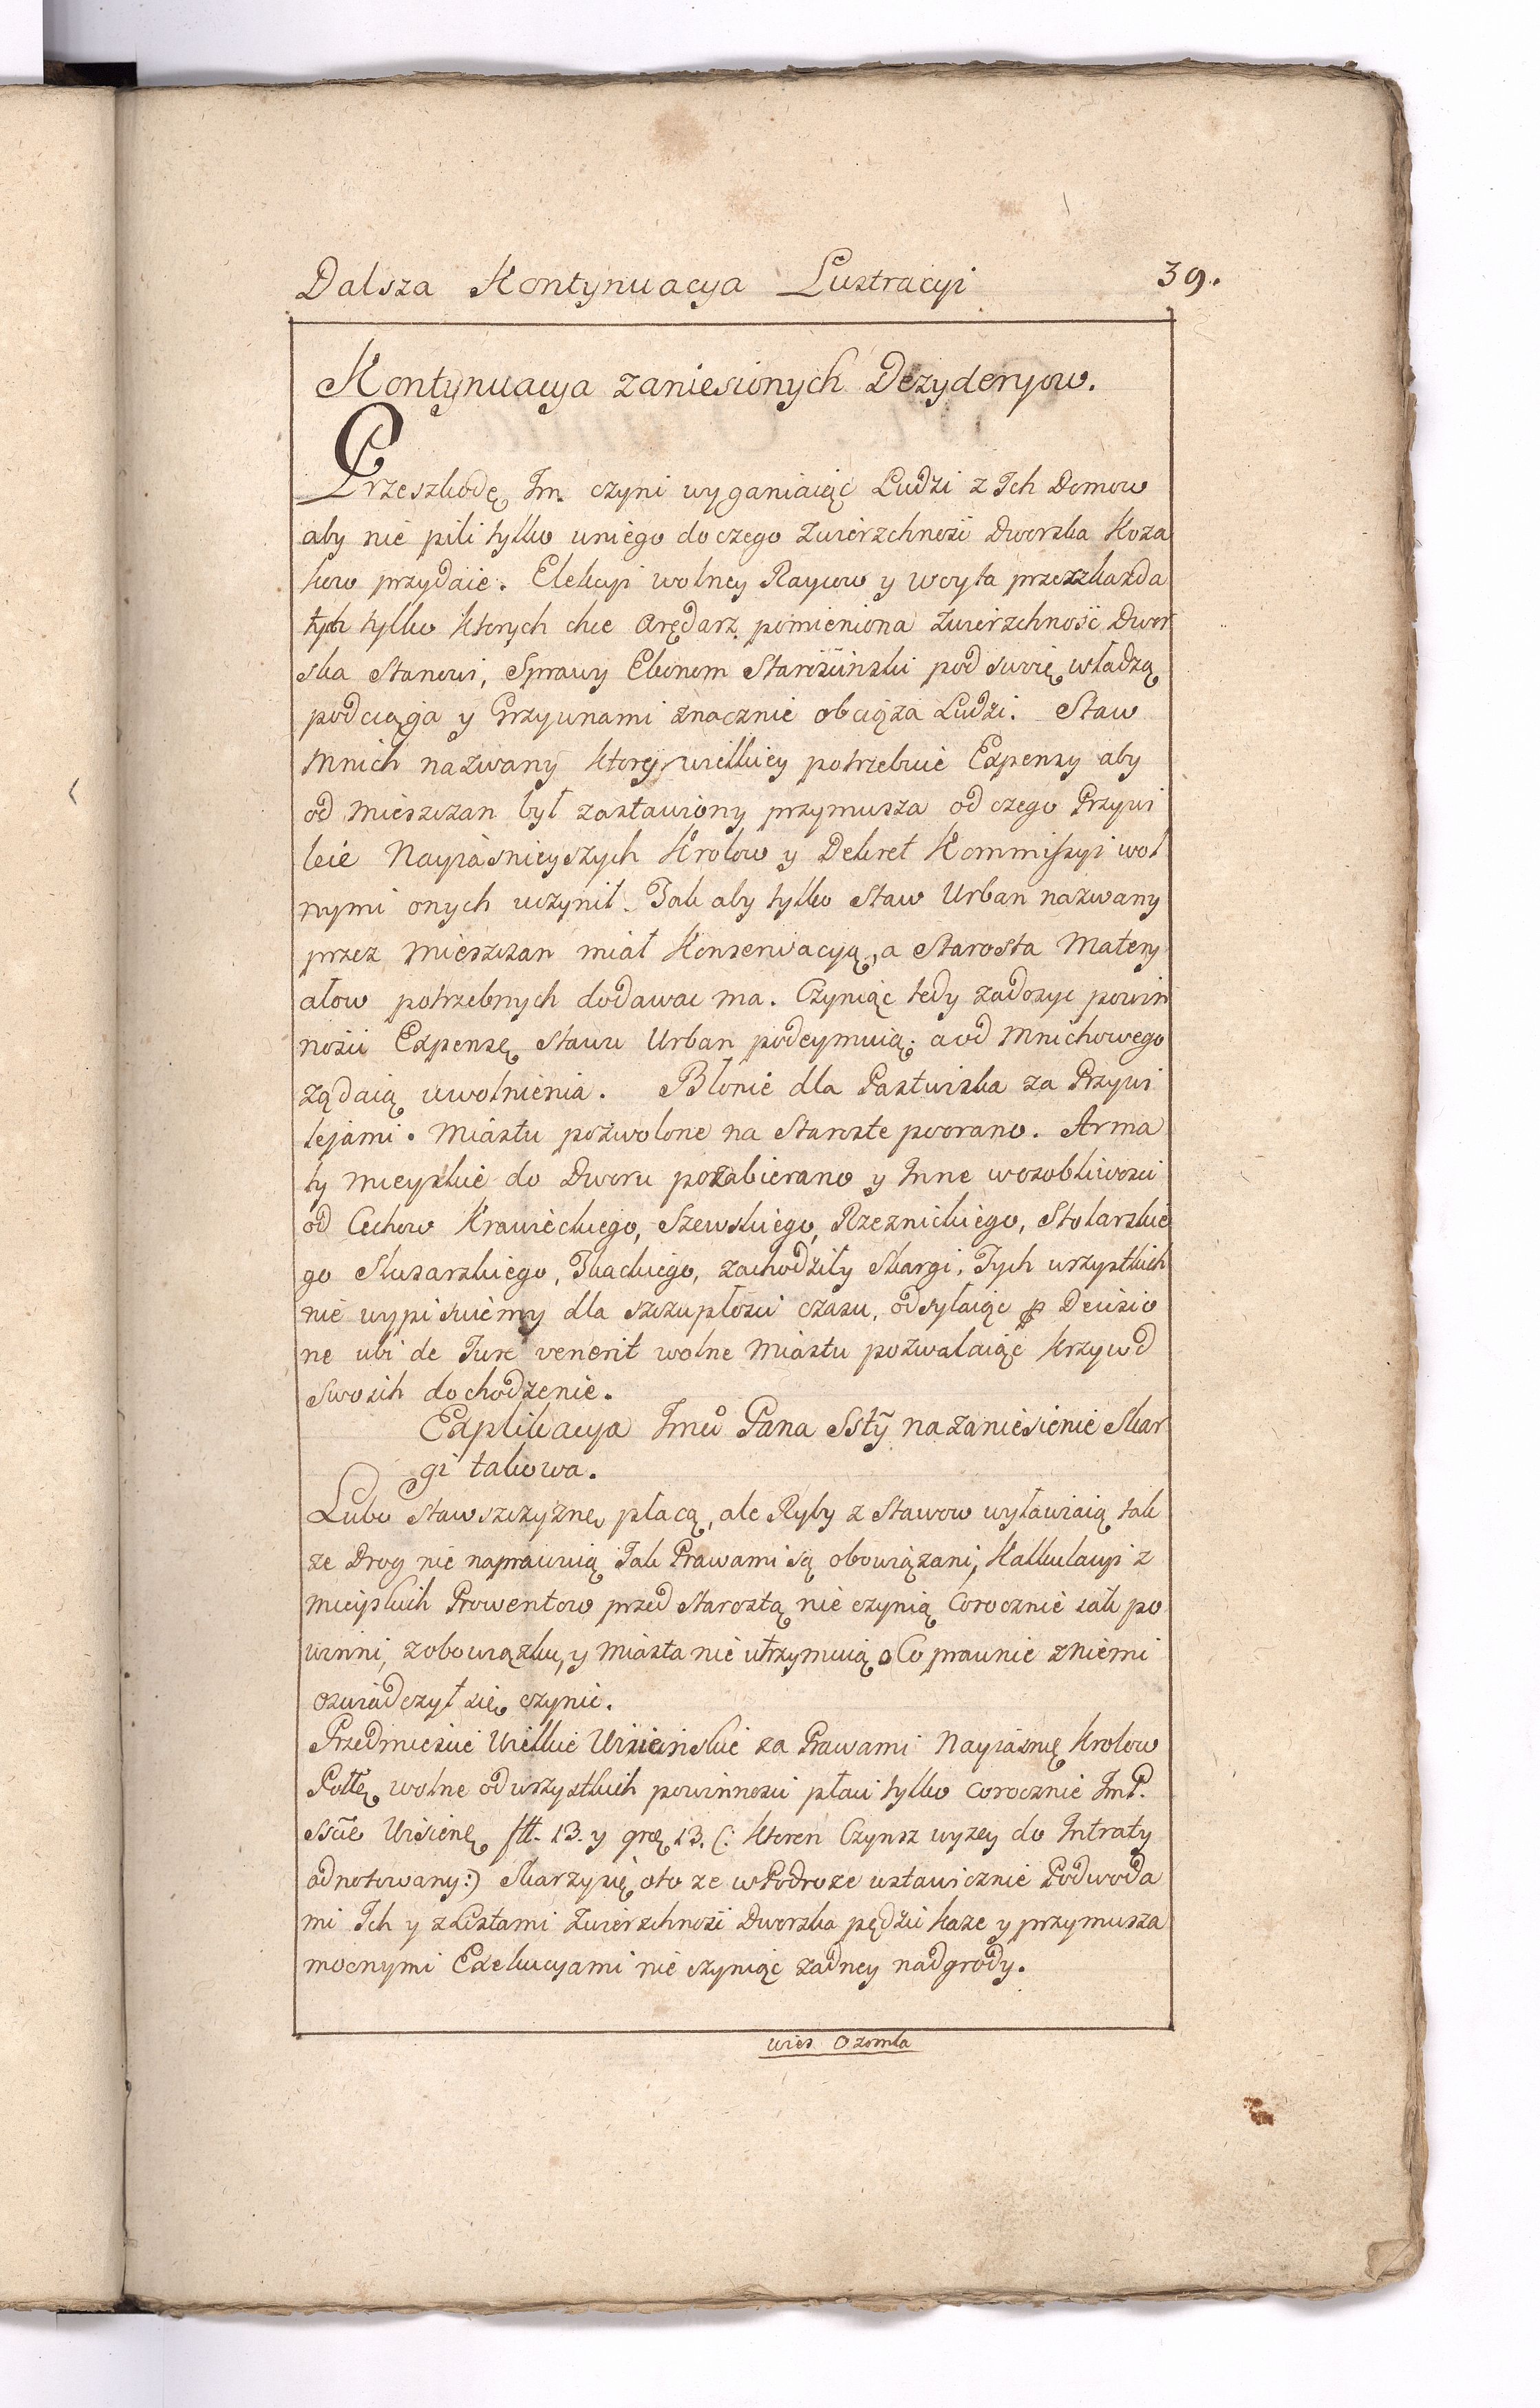 Dalsza Kontynuacya Lustracyi 39.
Kontynuacya zaniesionych Dezyderyow.
Przeszkodę Im. czyni wyganiaiąc Ludzi z Ich Domow
aby nie pili tylko uniego do czego Zwierzchność Dworska Koza
kow przydaie. Elekcyi wolney Raycow y woyta przeszkadza
tych tylko ktorych chce Arędarz pomieniona Zwierzchność Dwor
ska Stanowi, Sprawy Ekonom Starościnski pod swoię władzą
podciąga y Grzywnami znacznie obciąża Ludzi. Staw
Mnich nazwany ktory wielkiey potrzebuie Expensy aby
od Mieszczan był zastawiony przymusza od czego Przywi
leie Nayiasnieyszych Krolow y Dekret Kommissyi wol
nymi onych uczynił. Tak aby tylko Staw Urban nazwany
przez Mieszczan miał Konserwacyą, a Starosta Matery
ałow potrzebnych dodawac ma. Czyniąc tedy zadosyc powin
nosci Expensę Stawu Urban podeymuią. a od Mnichowego
żądaią uwolnienia. Błonie dla Pastwiska za Przywi
lejami. Miastu pozwolone na Staroste poorano. Arma
ty Mieyskie do Dworu pozabierano y Inne wosobliwosci
od Cechow Krawieckiego, Szewskiego, Rzeznickiego, Stolarskie
go Slusarskiego, Tkackiego, zachodziły Skargi, Tych wszystkich
nie wypisuiemy dla szczupłosci czasu, odsyłaiąc p Decisio
ne ubi de Jure venerit wolne Miastu pozwalaiąc krzywd
swoich dochodzenie.
Explikacya Jmci Pana Ssty na zaniesienie Skar
gi takowa.
Lubo Stawszczyznę płacą, ale Ryby z Stawow wyławiaią tak
ze Drog nie naprawuią Tak Prawami są obowiązani, Kalkulacyi z
Mieyskich Prowentow przed Starostą nie czynią Corocznie iak po
winni, zobowiązku, y Miasta nie utrzymuią. Co prawnie zniemi
oswiadczył się czynic.
Przedmiescie Wielkie Wiscienskie za Prawami Nayiasnię Krolow
Polłę wolne od wszystkich powinnosci płaci tylko corocznie ImP.
Sscie Wiscienę fłł. 13. y gręz 13. (: Ktoren Czynsz wyzey do Intraty
odnotowany:) Skarzy się oto ze w Podroze ustawicznie Podwoda
mi Ich y z Listami Zwierzchnosc Dworska pędzic kaze y przymusza
mocnymi Exekucyami nie czyniąc zadney nadgrody.
wies Ozomla